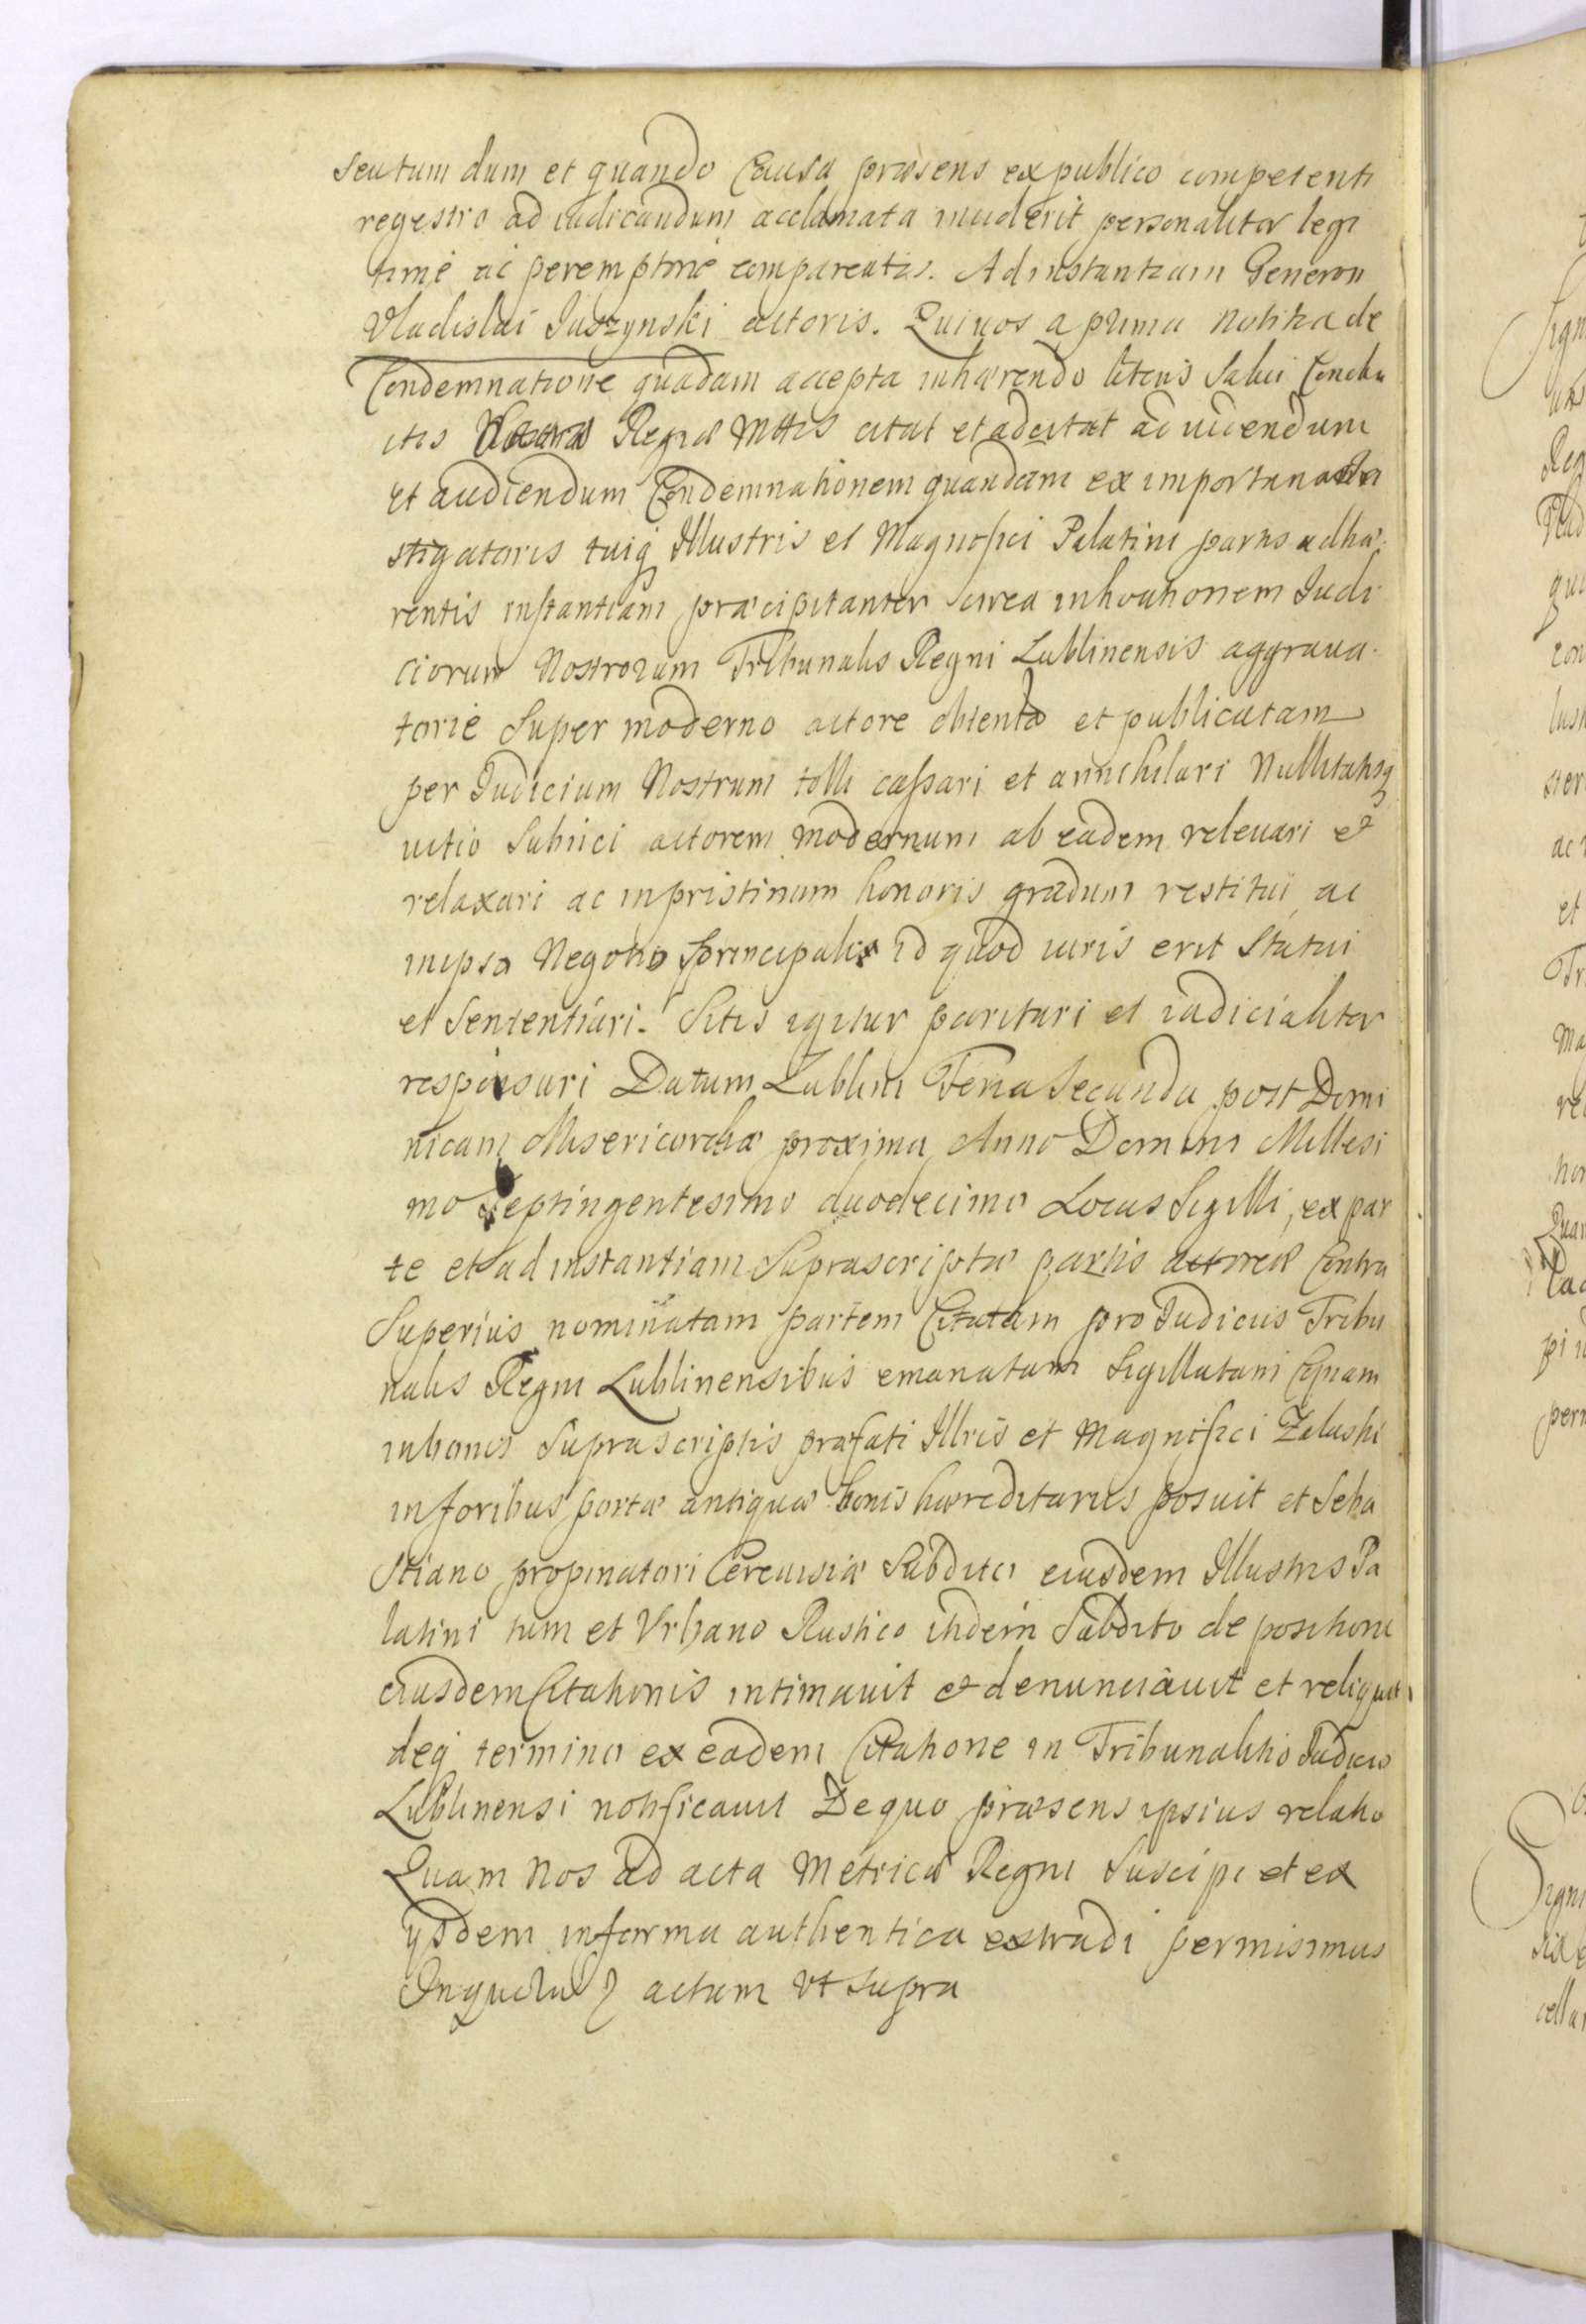 seutum dum et quando Causa præsens ex publico competenti
regestro ad iudicandum acclamata inciderit personaliter legi
time ac peremptorie compareatis. Ad instantiam Generosi
Vladislai Juszynski actoris. Qui vos a prima notitia de
Condemnatione quadam accepta inhærendo literis Salui Condu
ctis Regiæ Mttis citat et adcitat ad videndum
et audiendum Condemnationem quandam ex importuna In
stigatoris tuiq Illustris et Magnifici Palatini partis adhæ
rentis instantiam præcipitanter circa inchoationem Judi
ciorum Nostrorum Tribunalis Regni Lublinensis aggraua
torie Super moderno actore obtenta et publicatam
per Judicium Nostrum tolli cassari et annihilari Nullitatisq
vitio Subiici actorem modernum ab eadem releuari et
relaxari ac in pristinum honoris gradum restitui ac
in ipso Negotio principali id quod iuris erit Statui
et Sententiari. Sitis igitur parituri et iudicialiter
responsuri Datum Lublini Feria Secunda post Domi
nicam Misericordiæ proxima Anno Domini Millesi
mo Septingentesimo duodecimo Locus Sigilli, ex par
te et ad instantiam Suprascriptæ partis actoreæ Contra
Superius nominatam partem Citatam pro Judiciis Tribu
nalis Regni Lublinensibus emanatam Sigillatam Quam
in bonis Suprascriptis præfati Illris et Magnifici Zaluski
in foribus portæ antiquæ bonis hæreditariis posuit et Seba
Stiano propinatori Cereuisiæ Subdito eiusdem Illustris Pa
latini tum et Vrbano Rustico itidem Subdito de positione
eiusdem Citationis intimauit et denunciauit et reliquit
deq termino ex eadem Citatione in Tribunalitio Judicio
Lublinensi notificauit De quo præsens ipsius relatio
Quam Nos ad acta Metrices Regni Suscipi et ex
ysdem in forma authentica extradi permisimus
In quorum actum vt supra